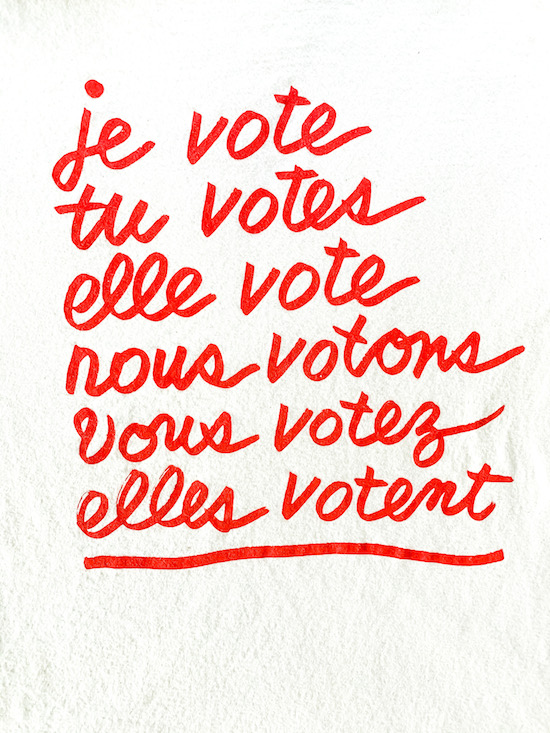 je vote
tu votes
elle vote
nous votons
vous votez
elles votent